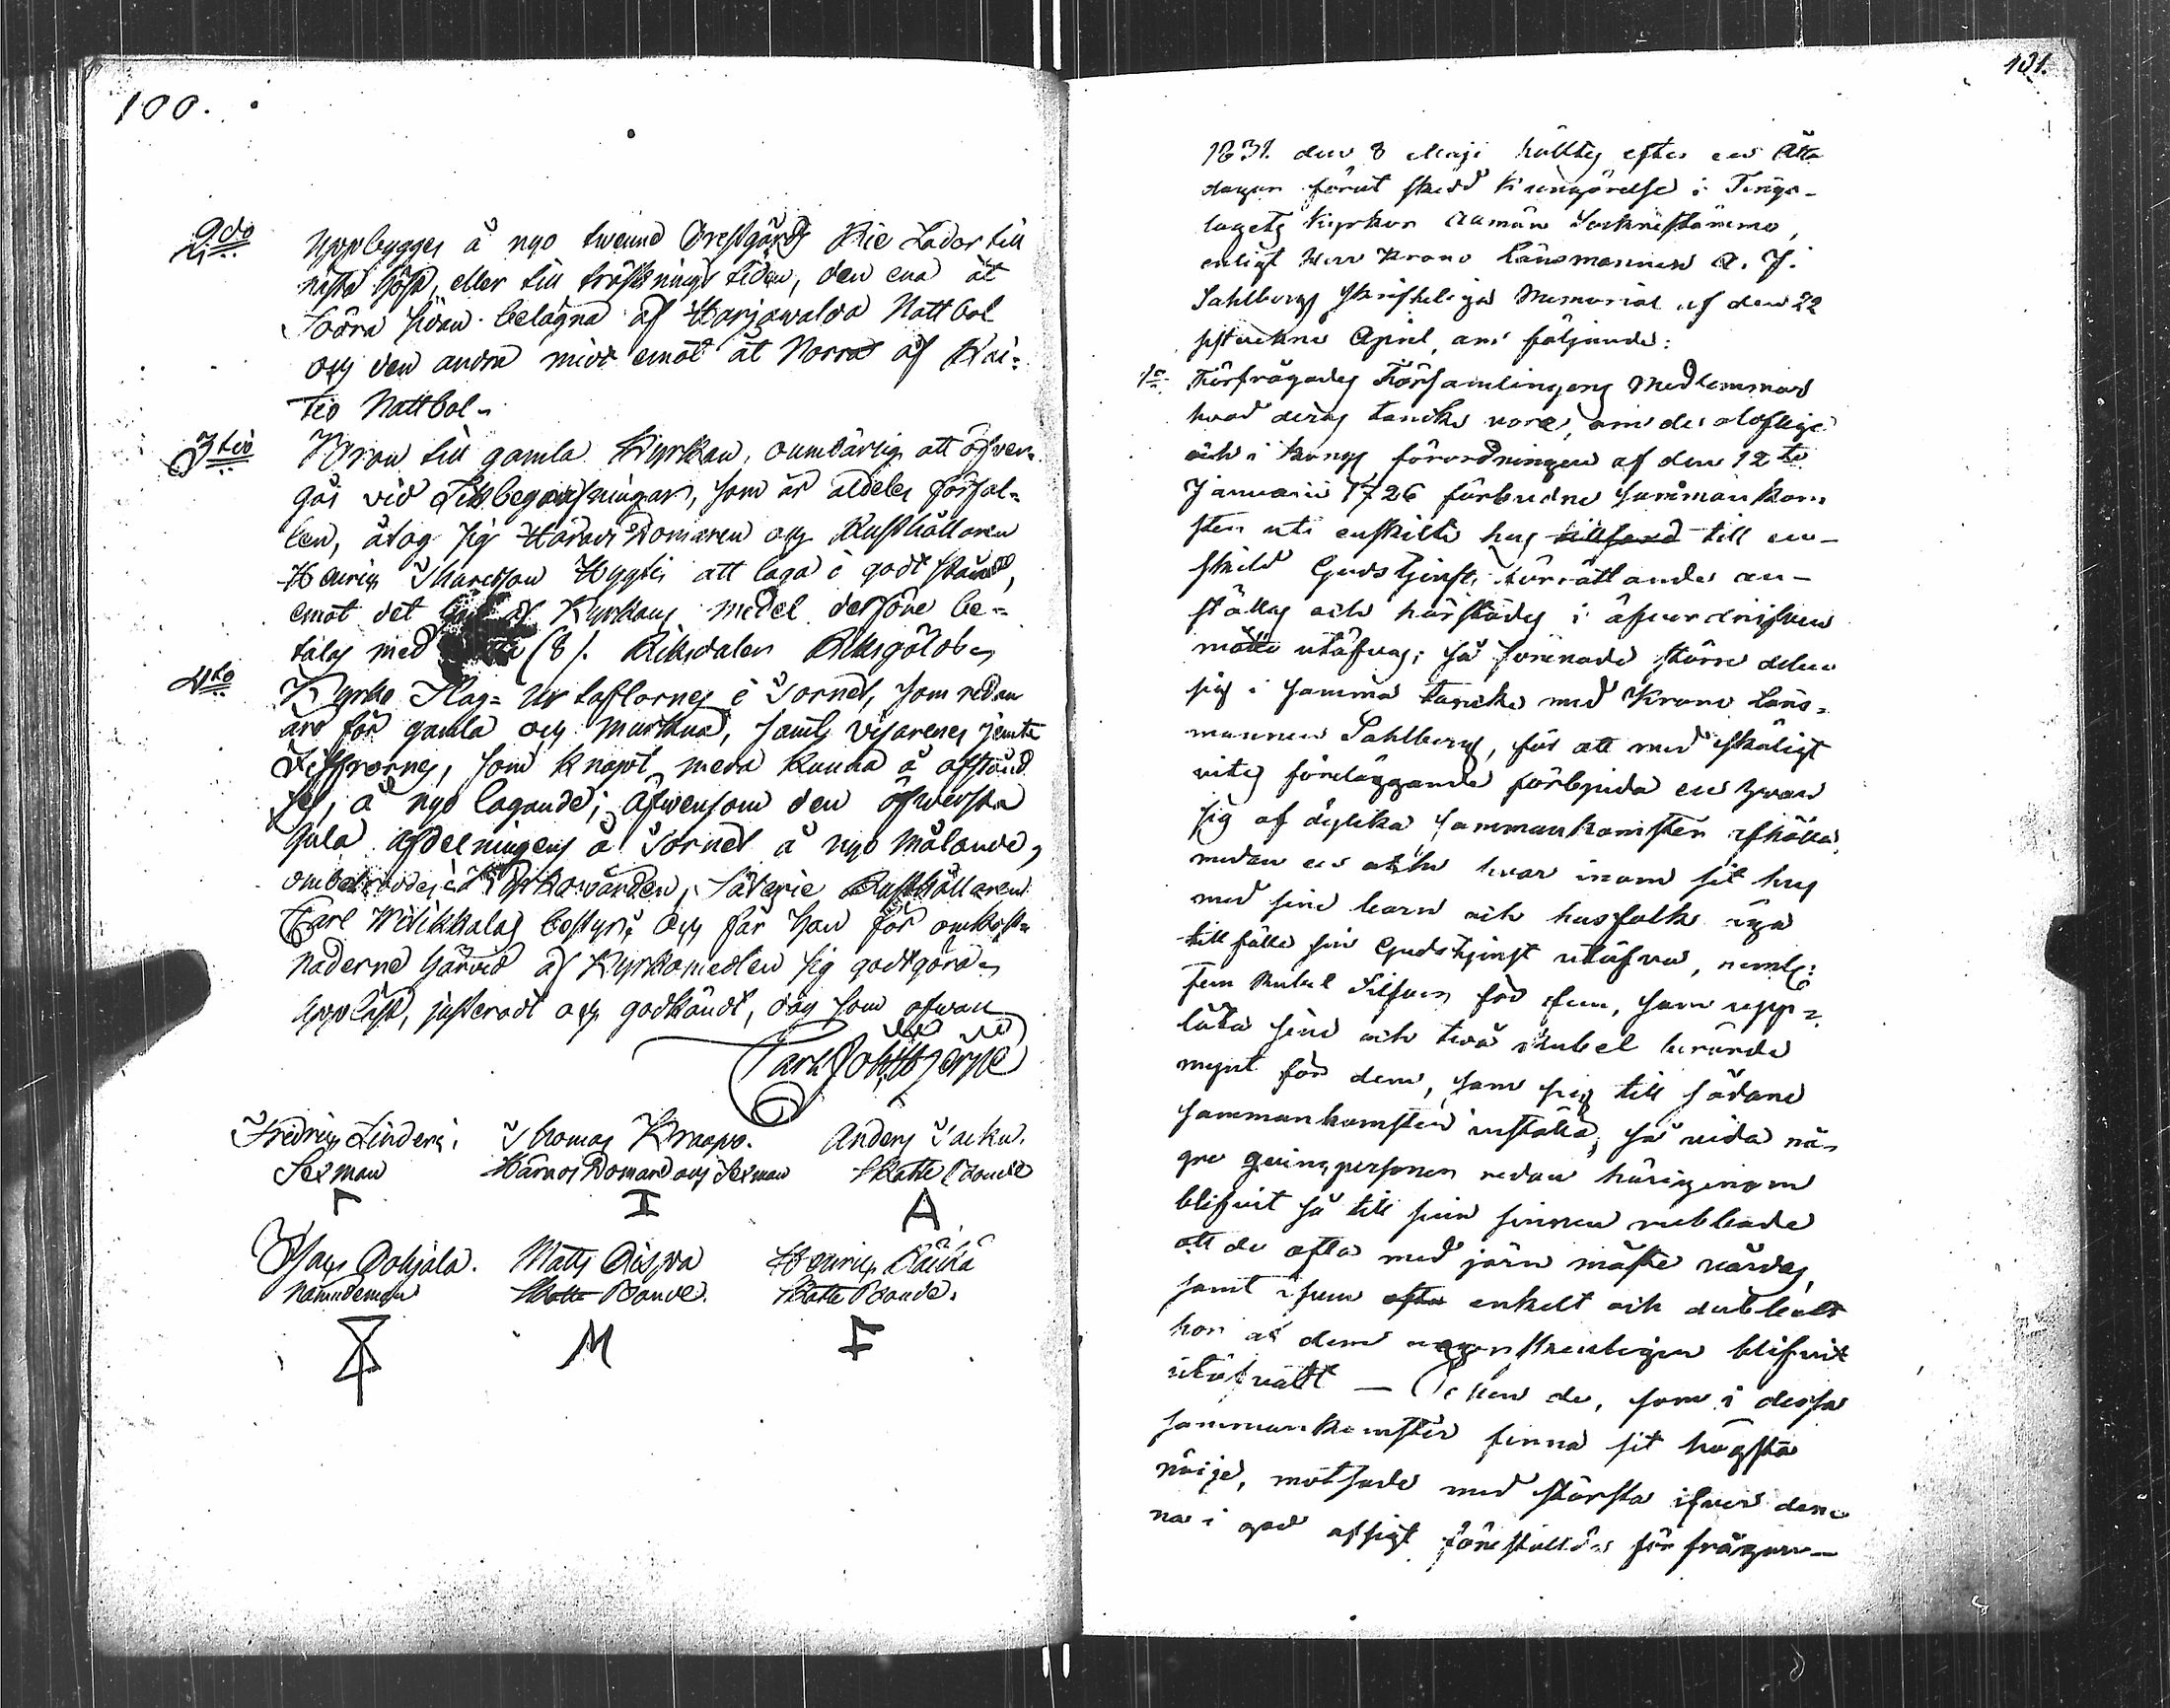 100.
2do Uppbygges å nyo twenne Prestgårds Rie Lador till
nästa höst, eller till tröskningstiden, den ena åt
Södra sidan belägna af Harjawalda Nattbol
och den andra midt emot åt Norra af Kai=
tio Nattbol.
3tio Bron till gamla Kyrkan, oumbärlig att öfver-
gås vid Likbegrafningar, som är aldeles förfal=
len, åtog sig Härads Domaren och Rusthållaren
Henric Thomasson Hygti att laga i godt stånd,
emot det af Kyrkans medel derföre be=
talas med (8). Riksdaler Riksgälds
4to Kyrko Slag=Ur taflornes i Tornet, som redan
äro för gamla och murkna, samt visarenes jemte
Ziffrornes, som knapt mera kunna å afstånd
ses, å nyo lagande; äfwensom den öfwersta
gula afdelningens å Tornet å nyo målande,
ombetroddes Kyrkowärden, Säterie Rusthållaren
Carl Wilikkalas bestyr; och får han för omkost=
naderne härwid af Kyrkomedlen sig godtgöra.
Upläst, justeradt och godkändt, dag som ofwan
Carl Joh.
Fredric Linderi. Thomas Kraapo. Anders Jacku.
Sexman Härads Domare och Sexman Skatte Bonde
Γ I A
Hans Pohjala. Matts Henric
Nämndeman Skatte Bonde. Skatte Bonde.
M F
101.
1831. den 8 Maji hölltes efter en Åtta
dagar förut skedd kungörelse i Tings-
lagets Kyrkor allmän Socknestämma,
enligt Herr Krono Länsmannen A. J.
Sahlbergs skrifteliga Memorial af den 22
sistvekne April, om följande:
1o Förfrågades Församlingens Medlemmar
hvad deras tancka vore, om de olaflige
och i Kongl. förordningen af den 12te
Januarii 1726 förbudne samman kom
ster uti enskilte hus till en-
skild Gudstjensts förrättande an-
ställas och härstädes i
måtto utöfvas; så förenade större delen
sig i samma tancka med Krono Läns=
mannen Sahlberg, för att med skäligt
vites föreläggande förbjuda en hvar
sig af dylika sammankomster afhålla,
medan en och hvar inom sit hus
med sine barn och husfolk äga
tillfälle sin Gudstjenst utöfva, neml:
fem Rubel Silfver för dem, som upp=
låta sine och två Rubel berörde
mynt för dem, som sig till sådane
sammankomster inställa; så vida nå-
gre qvinspersoner redan härigenom
blifvit så till sine sinnen rubbade
att de ofta med järn måste vårdas,
samt äfven enkelt och dubbelt
hor af dem blifvit
utöfvadt — Och de, som i dessa
sammankomster finna sit högsta
nöije, motsade med största ifver den-
na i god afsigt förestälda förfrågan—